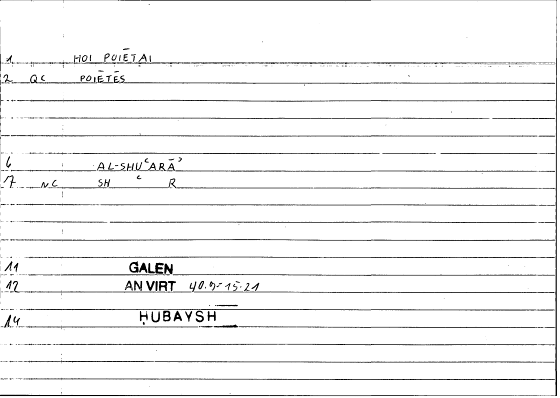 1 HOI POIĒTAI
2 QC POIĒTĒS
6 AL-SHUʿARĀʾ
7 NC SH ʿ R
11 GALEN
12 AN VIRT 40.5-15.21
14 ḤUBAYSH